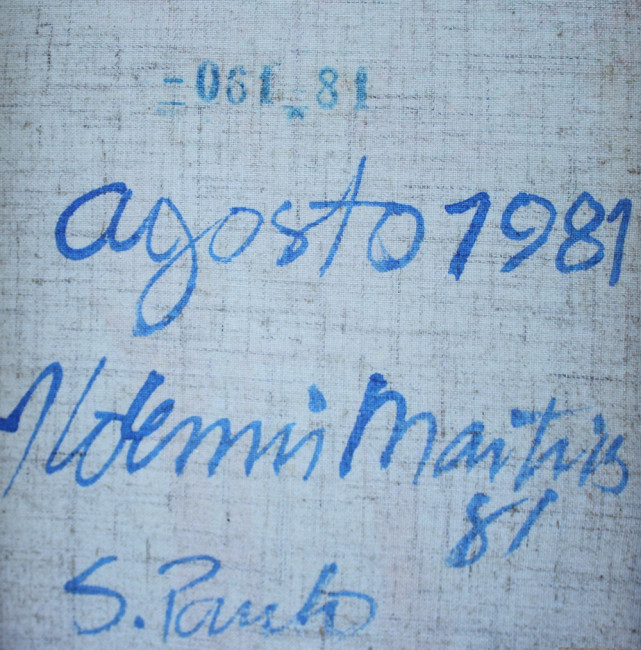 -061-81
agosto 1981
Noemi Martins
81
S. Paulo